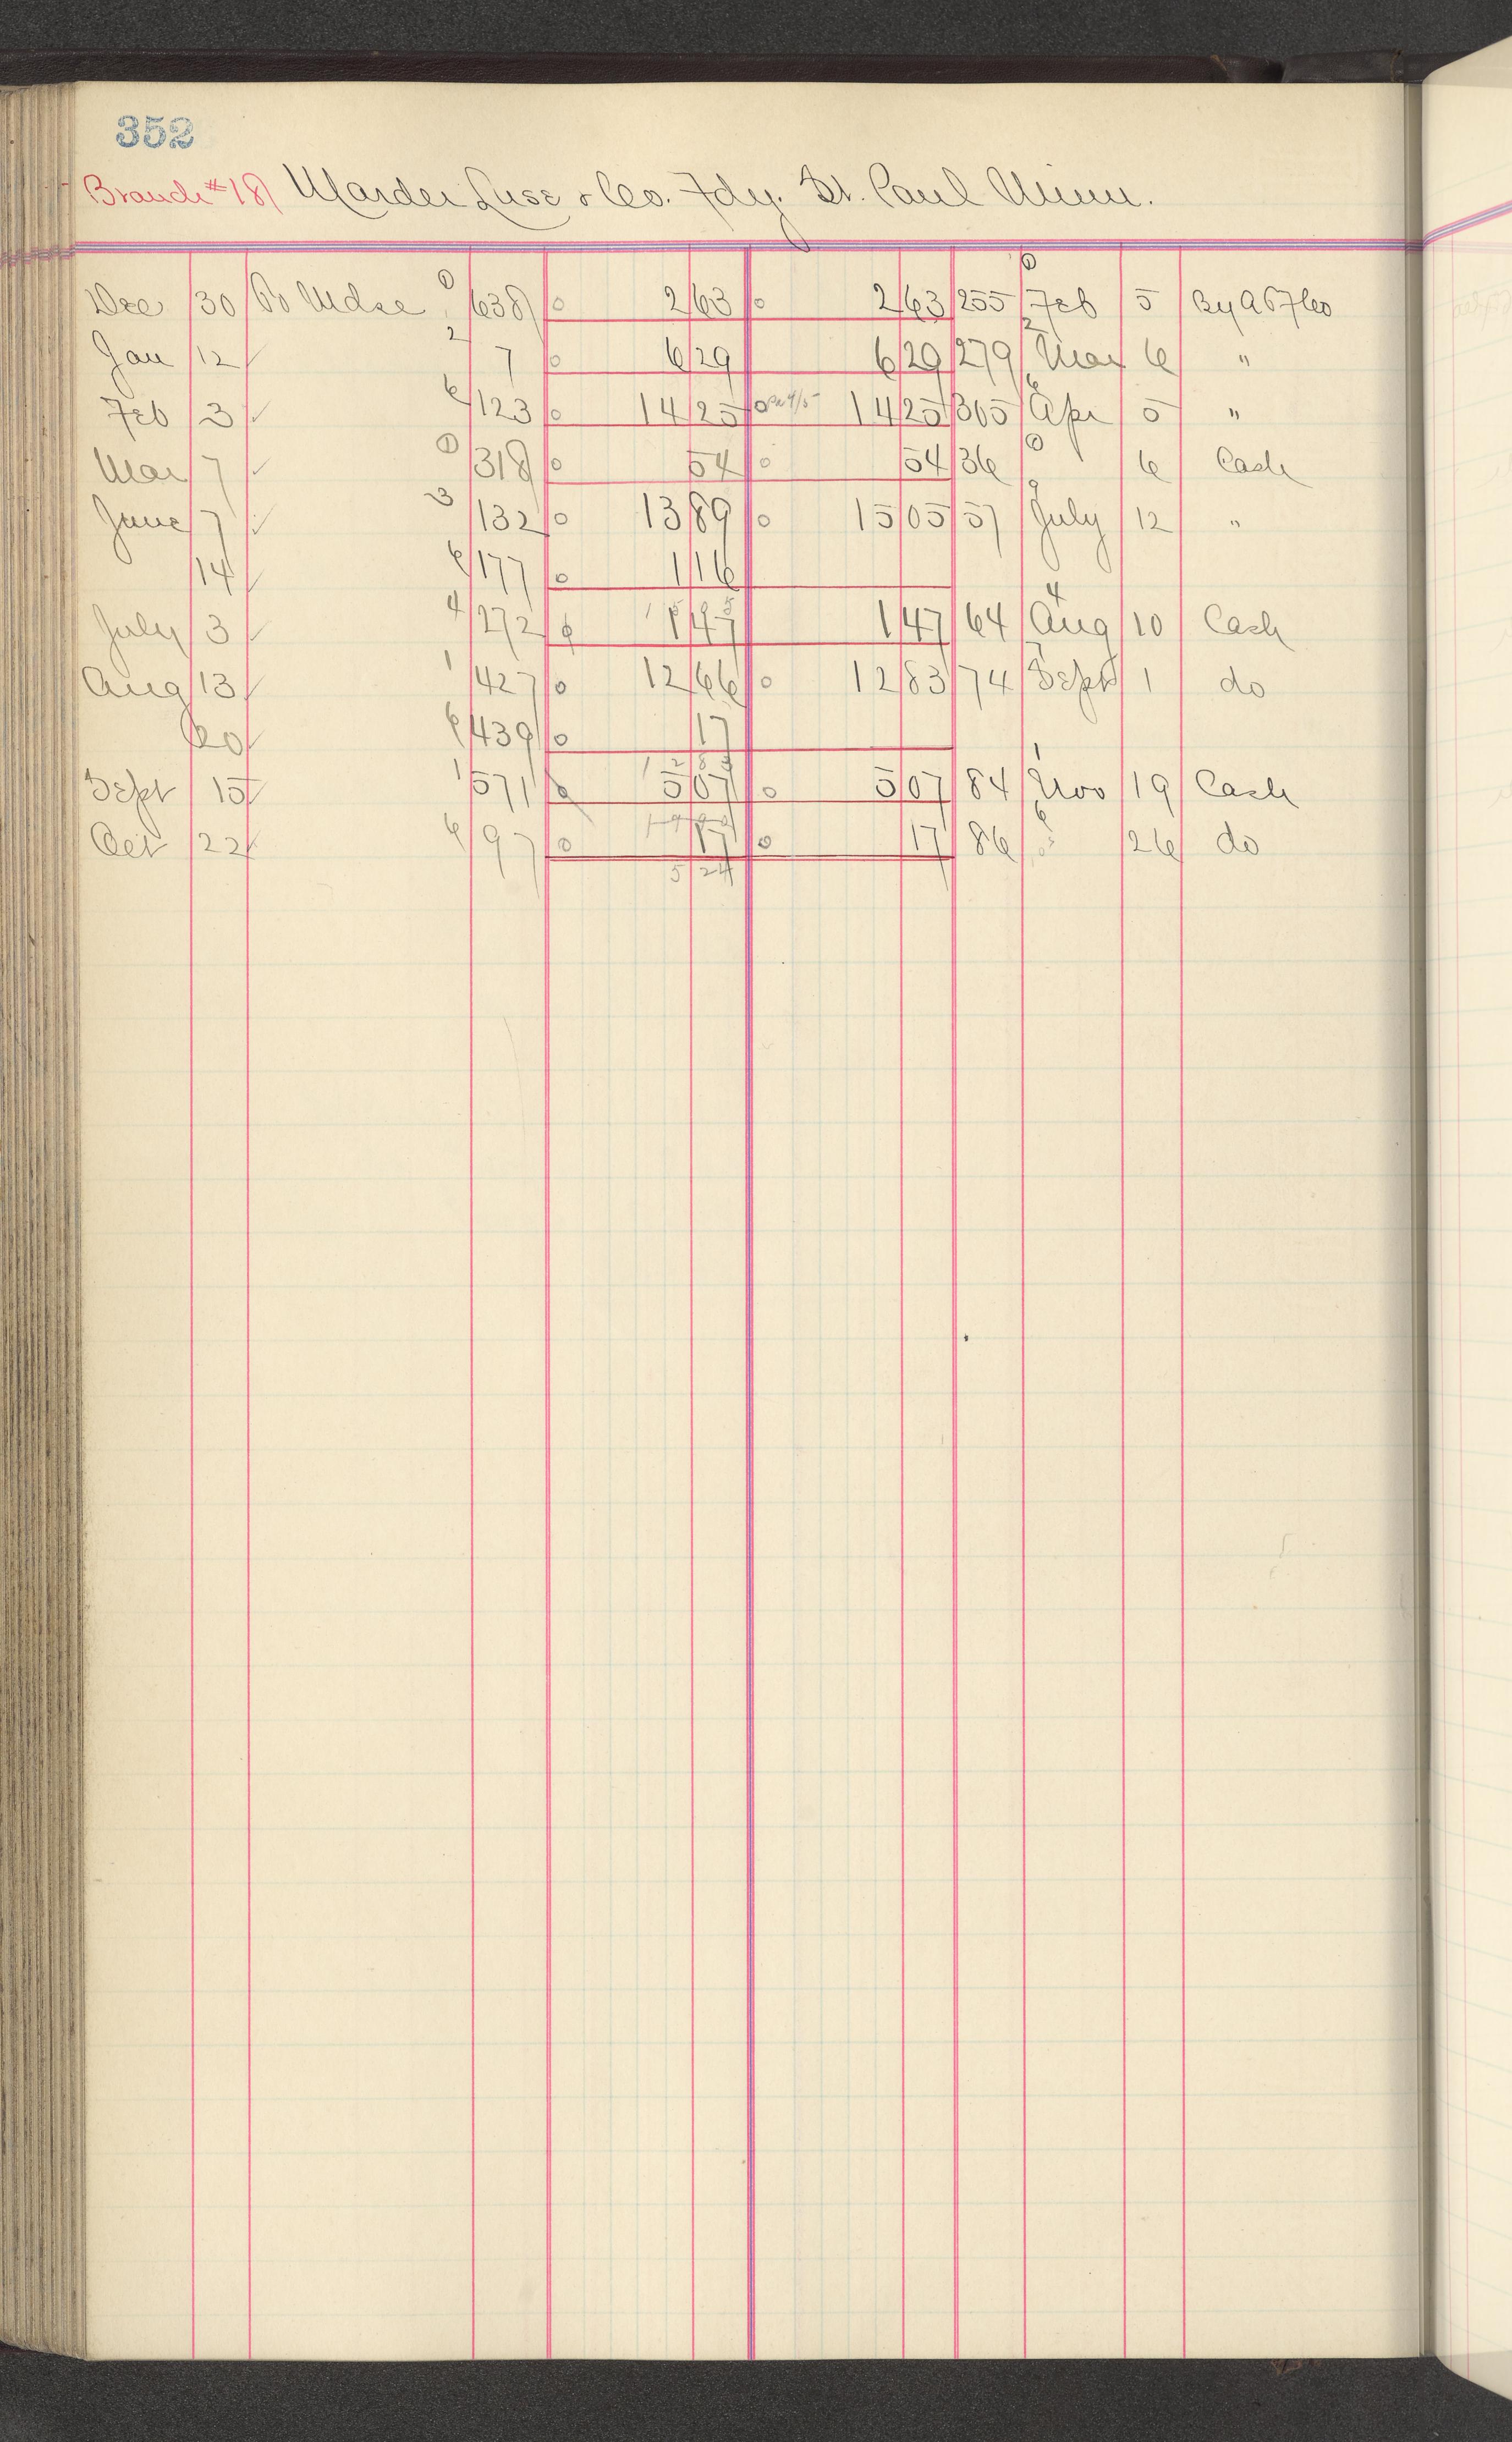 352
Branch #18) Marder Luse & Co. Fdy. St. Paul Minn.
Dec 30 To Mdse 1 638 0 2 63 0 2 63 255 1 Feb 5 By ASF Co
Jan 12 ✓ 2 7 0 6 29 6 29 279 2 Mar 6 "
Feb 3 ✓ 6 123 0 14 25 0 14 25 305 6 Apr 5 "
Mar 7 ✓ 1 318 0 54 0 54 36 1 6 Cash
June 7 ✓ 3 132 0 13 89 0 15 05 57 9 July 12 "
14 ✓ 6 177 0 1 16
July 3 ✓ 4 272 0 1 47 1 47 64 4 Aug 10 Cash
Aug 13 ✓ 1 427 0 12 66 0 12 83 74 1 Sept 1 do
20 ✓ 6 439 0 17
12 83
Sept 15 ✓ 1 571 0 5 07 0 5 07 84 1 Nov 19 Cash
Oct 22 ✓ 6 97 0 17 0 17 86 6 26 do
5 24